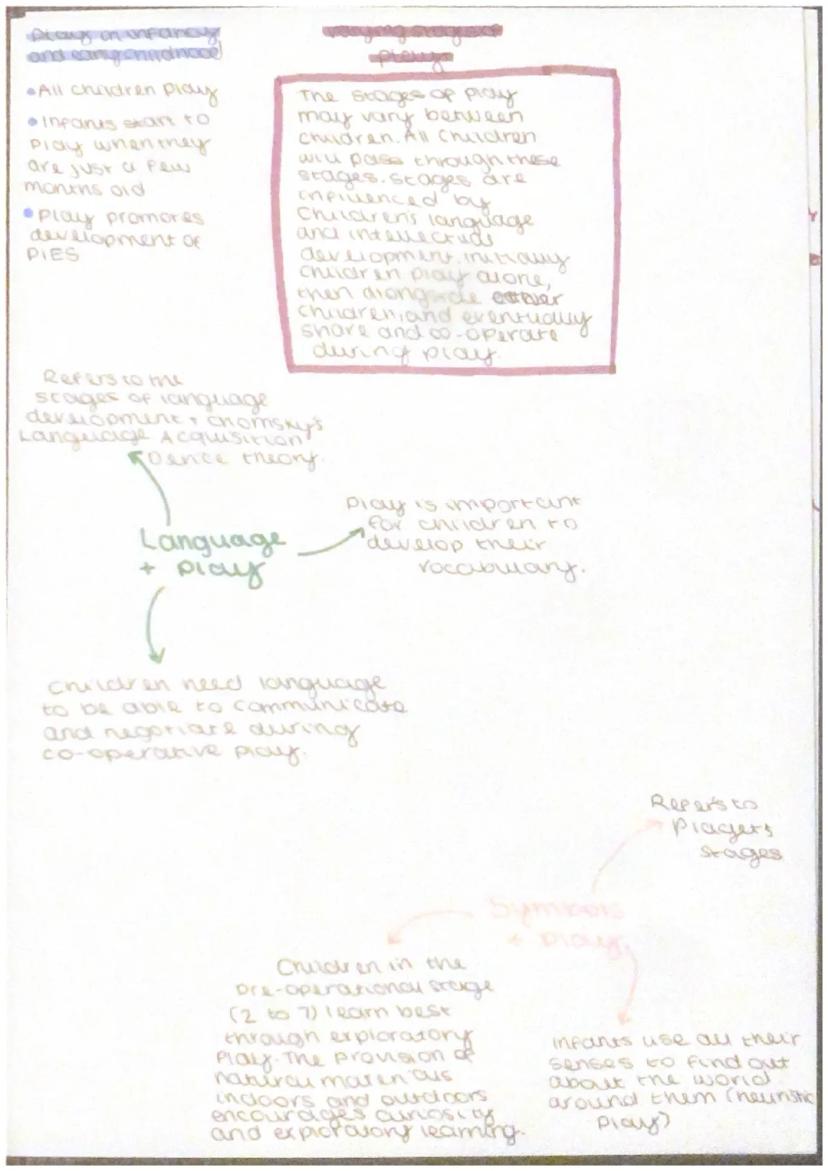 Plays in infancy
and early childhood
• All children play
• Infants start to
play when they
are just a few
months old
• Play promotes
development of
PIES
varying stages of
play
The stages of play
may vary between
children. All children
will pass through these
stages. stages are
influenced by
children's language
and intellectual
development. initially
children play alone,
then alongside other
children, and eventually
share and co-operate
during play.
Refers to the
stages of language
development + Chomsky's
Language Acquisition
Device theory.
Language
+ play
Play is important
for children to
develop their
vocabulary.
Children need language
to be able to communicate
and negotiate during
co-operative play.
Refers to
Piagets
stages
Symbols
+ play
Children in the
pre-operational stage
(2 to 7) learn best
through exploratory
play. The provision of
natural materials
indoors and outdoors
encourages curiosity
and exploratory learning.
infants use all their
senses to find out
about the world
around them (heuristic
play)